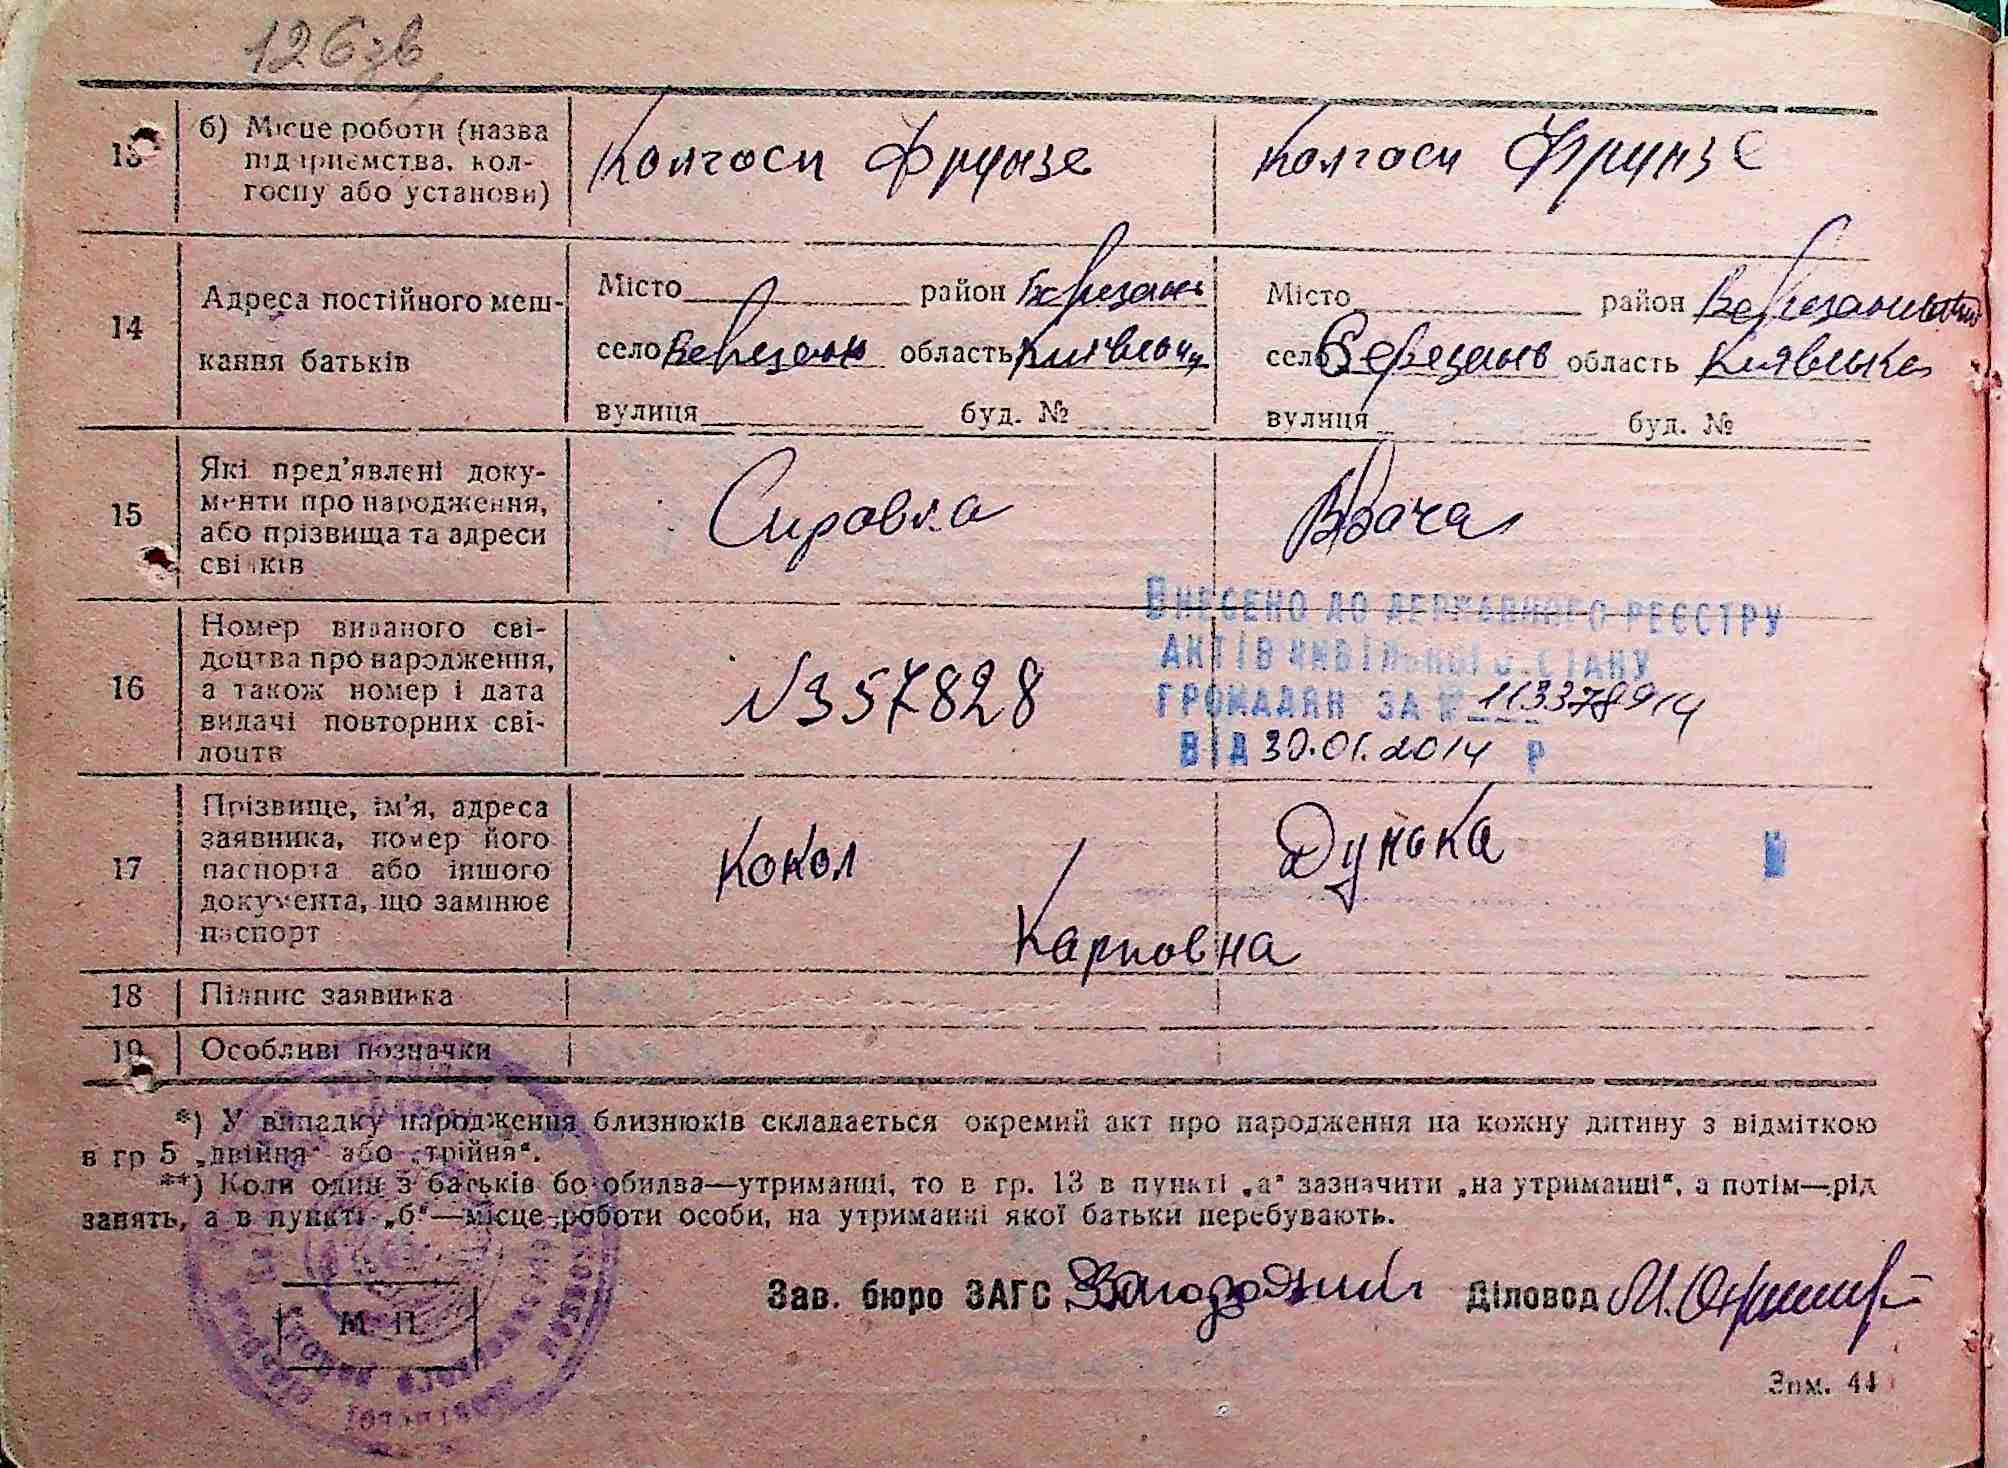 126 зв
13
б) Місце роботи (назва
підприємства, кол-
госпу або установи)
Колгосп Фрунзе
Колгосп Фрунзе
14
Адреса постійного меш-
кання батьків
Місто район Березань
село Березань область Київськ
вулиця буд. №
Місто район Березанський
село Березань область Київська
вулиця буд. №
15
Які пред'явлені доку-
менти про народження,
або прізвища та адреси
свідків
Справка
Врача
16
Номер виданого сві-
доцтва про народження,
а також номер і дата
видачі повторних сві-
доцтв
№357828
ВНЕСЕНО ДО ДЕРЖАВНОГО РЕЄСТРУ
АКТІВ ЦИВІЛЬНОГО СТАНУ
ГРОМАДЯН ЗА № 113378914
ВІД 30.01.2014 Р
17
Прізвище, ім'я, адреса
заявника, номер його
паспорта або іншого
документа, що замінює
паспорт
Кокол
Дунька
Карповна
18
Підпис заявника
19
Особливі позначки
*) У випадку народження близнюків складається окремий акт про народження на кожну дитину з відміткою
в гр 5 „двійня“ або „трійня“.
**) Коли один з батьків бо обидва—утриманці, то в гр. 13 в пункті „а“ зазначити „на утриманні“, а потім—рід
занять, а в пункті „б“—місце роботи особи, на утриманні якої батьки перебувають.
Зав. бюро ЗАГС
Діловод
М. П.
Зам. 44